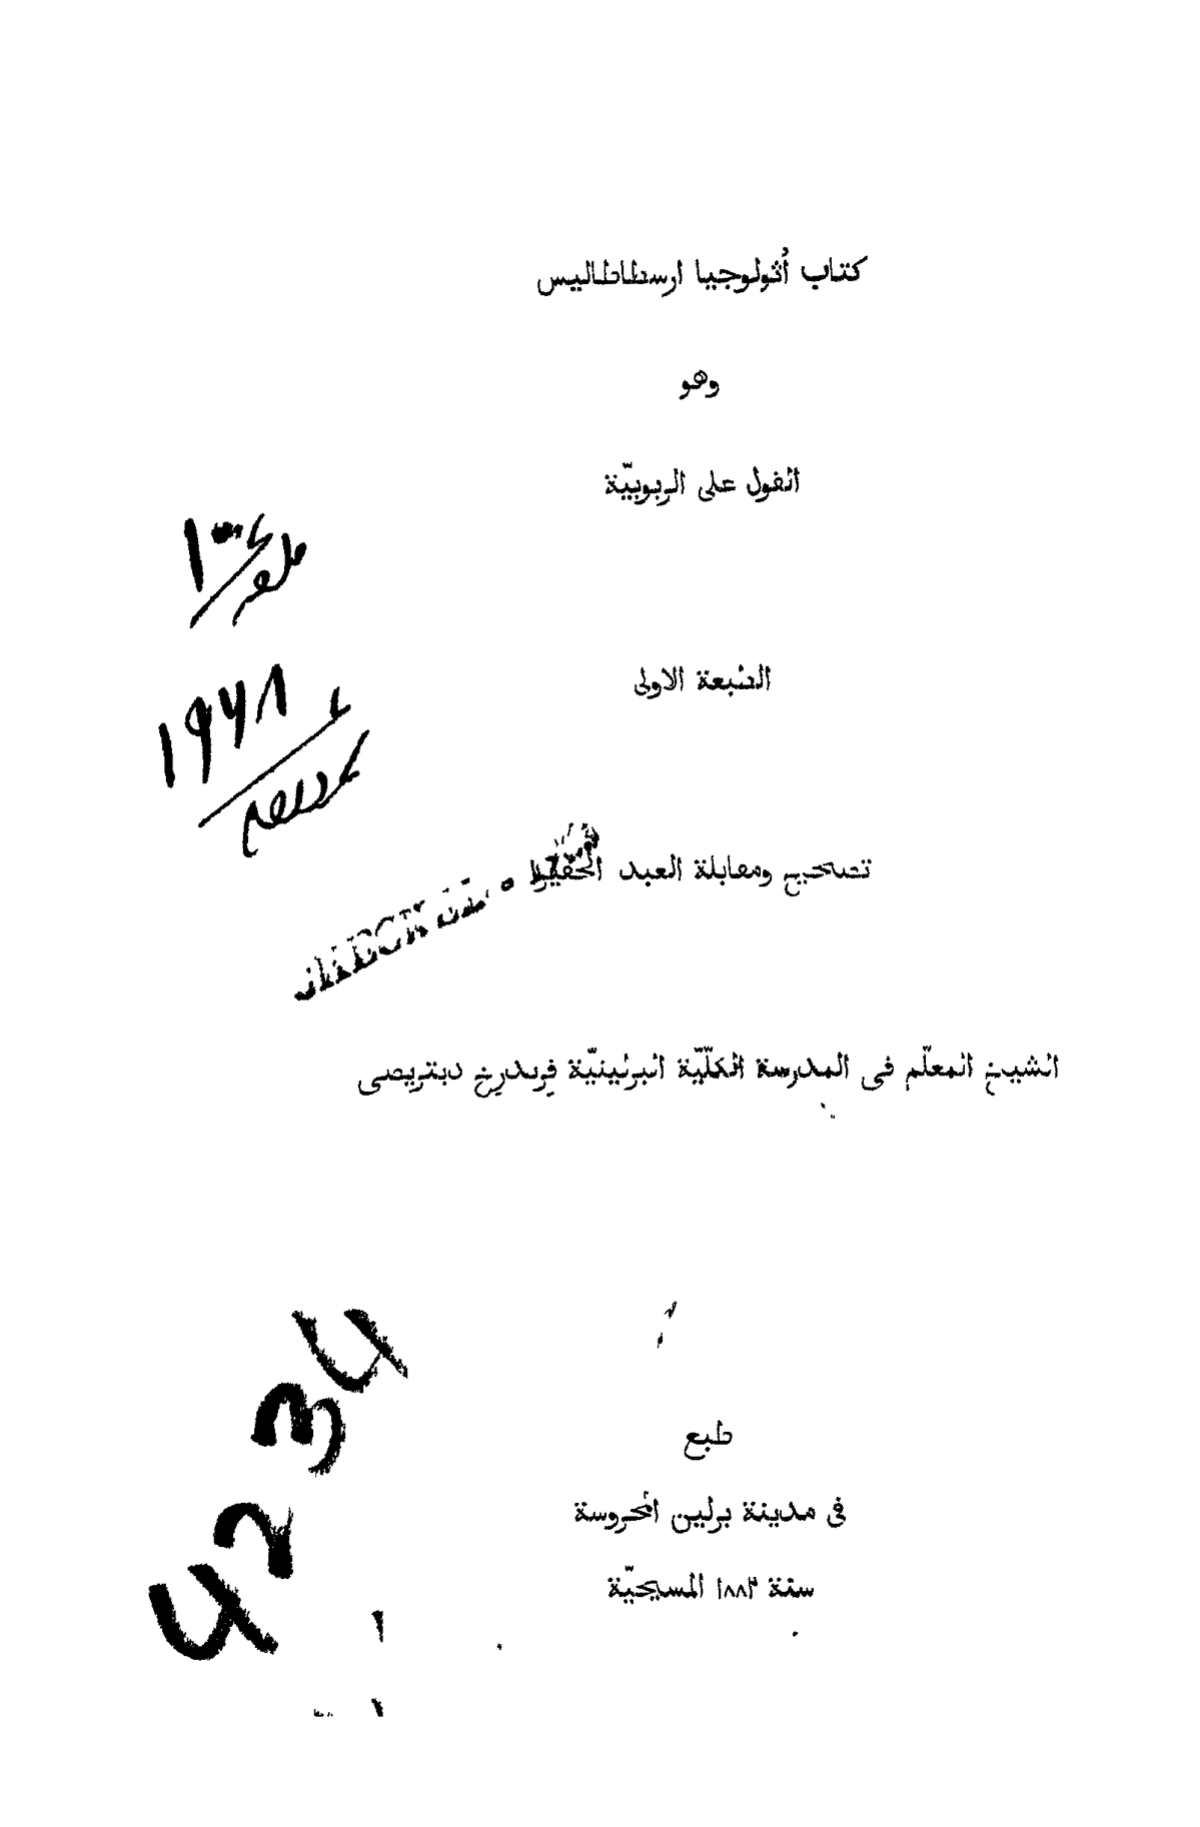 كتاب أثولوجيا ارسطاطاليس
وهو
القول على الربوبيّة
الطبعة الاولى
تصحيح ومقابلة العبد الحقير
الشيخ المعلّم فى المدرسة الكلّيّة البرلينيّة فريدرخ ديتريصى
4234
طبع
فى مدينة برلين المحروسة
سنة ١٨٨٢ المسيحيّة